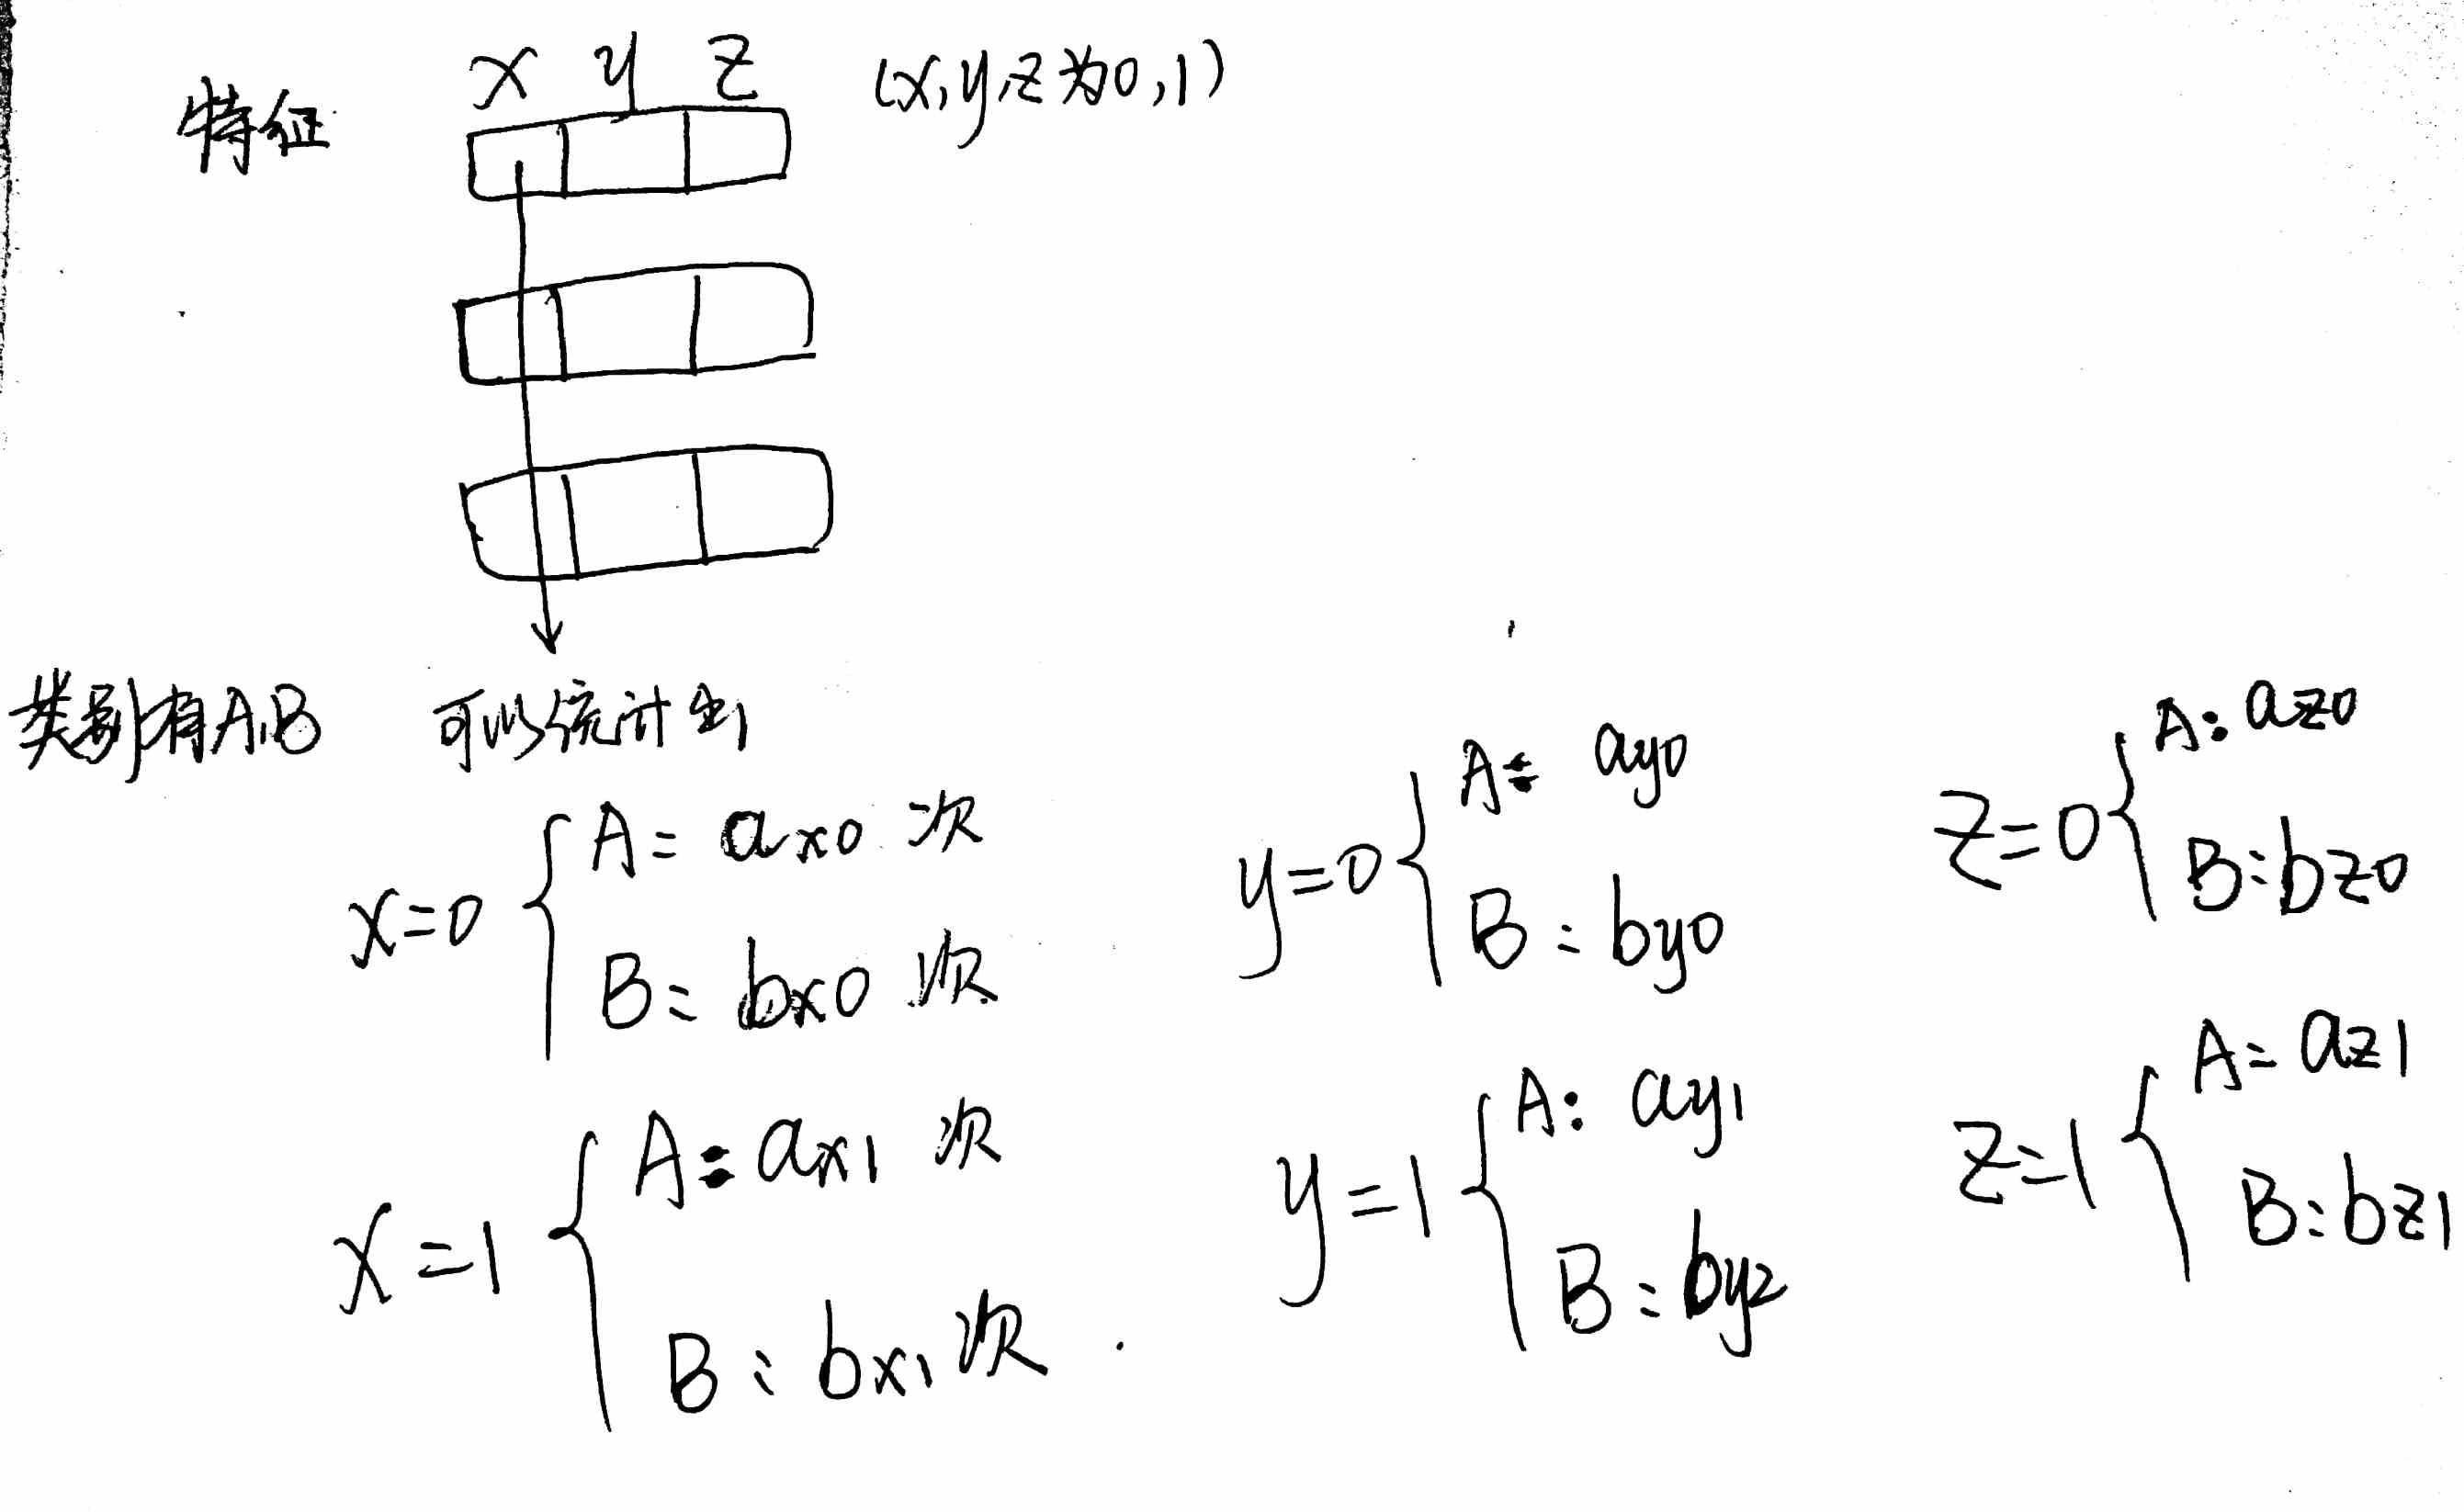 x y z (x,y,z为0,1)
特征
类别有A,B 可以统计出
x=0 { A: ax0 次
B: bx0 次
x=1 { A: ax1 次
B: bx1 次.
y=0 { A: ay0
B: by0
y=1 { A: ay1
B: by2
z=0 { A: az0
B: bz0
z=1 { A: az1
B: bz1